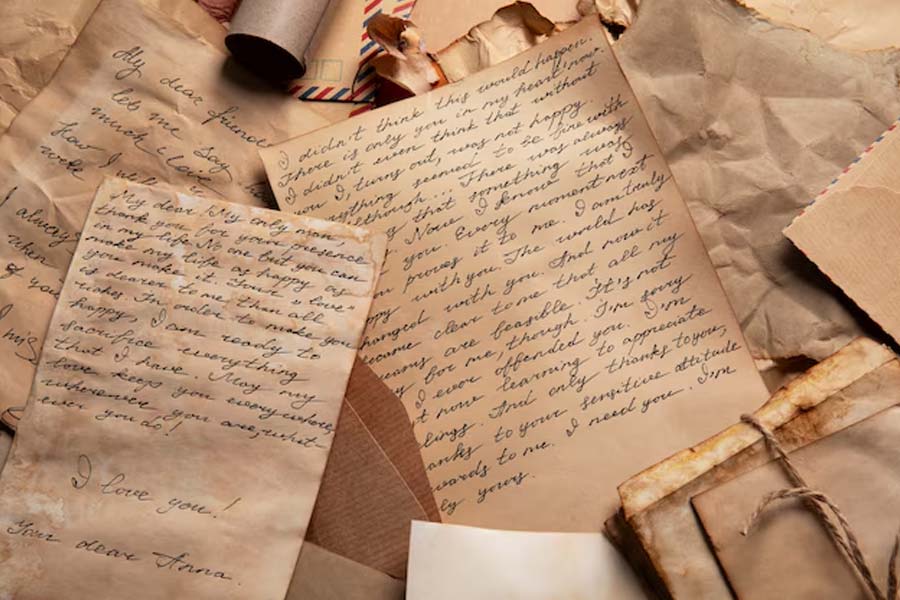 My dear friend
let me say
much
how I
I always
when
of you
My dear My only man,
thank you for your presence
in my life. No one but you can
make my life as happy as
you make it. Your love
is dearer to me than all
riches. In order to make you
happy, I am ready to
sacrifice everything
that I have. May my
love keep you everywhere,
wherever you are, what-
ever you do!
I love you!
Your dear Anna.
I didn't think this would happen.
There is only you in my heart now.
I didn't even think that without
you I, turns out, was not happy.
rything seemed to be fine with
lthough... There was always
g that something was
. Now I know that I
you. Every moment next
u proves it to me. I am truly
ppy with you. The world has
hanged with you. And now it
ecame clear to me that all my
reams are feasible. It's not
y for me, though. I'm sorry
I ever offended you. I'm
t now learning to appreciate
lings. And only thanks to you,
anks to your sensitive attitude
wards to me. I need you. I'm
ly yours.